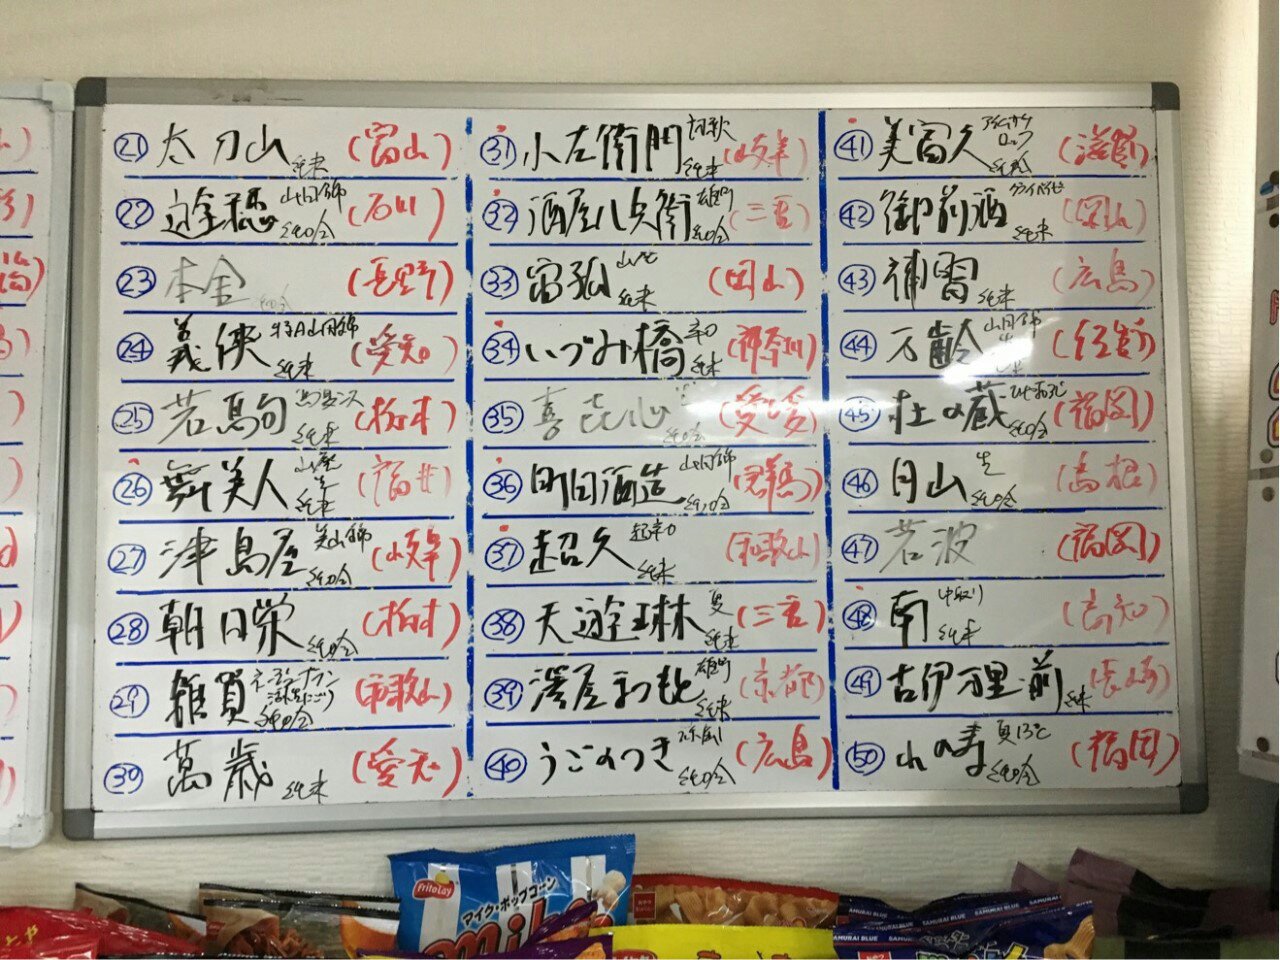 ㉑ 太刀山 純米 (富山)
㉒ 遊穂 山田錦 純吟 (石川)
㉓ 本金 純吟 (長野)
㉔ 義侠 特A山田錦 純米 (愛知)
㉕ 若駒 純米 (栃木)
㉖ 舞美人 山廃 生 純米 (福井)
㉗ 津島屋 美山錦 純吟 (岐阜)
㉘ 朝日栄 純吟 (栃木)
㉙ 雑賀 純吟 (和歌山)
㉚ 萬歳 純米 (愛知)
㉛ 小左衛門 純米 (岐阜)
㉜ 酒屋八兵衛 雄町 純吟 (三重)
㉝ 山廃 純米 (岡山)
㉞ いづみ橋 辛口 純米 (神奈川)
㉟ 喜 心 純吟 (愛媛)
㊱ 町田酒造 山田錦 純吟 (群馬)
㊲ 超久 超辛口 純米 (和歌山)
㊳ 天遊琳 夏 純米 (三重)
㊴ 澤屋まつもと 雄町 純米 (京都)
㊵ うごのつき 純吟 (広島)
㊶ 美冨久 純吟 (滋賀)
㊷ 御前酒 純米 (岡山)
㊸ 純米 (広島)
㊹ 万齢 山田錦 生 (佐賀)
㊺ 杜の蔵 ひやおろし 純吟 (福岡)
㊻ 月山 生 純吟 (島根)
㊼ 若波 (福岡)
㊽ 南 中取り 純米 (高知)
㊾ 古伊万里 前 純米 (長崎)
㊿ 山の壽 夏13℃ 純吟 (福岡)
FritoLay
マイク・ポップコーン
Mike
SAMURAI BLUE SAMURAI BLUE
SAMURAI BLUE